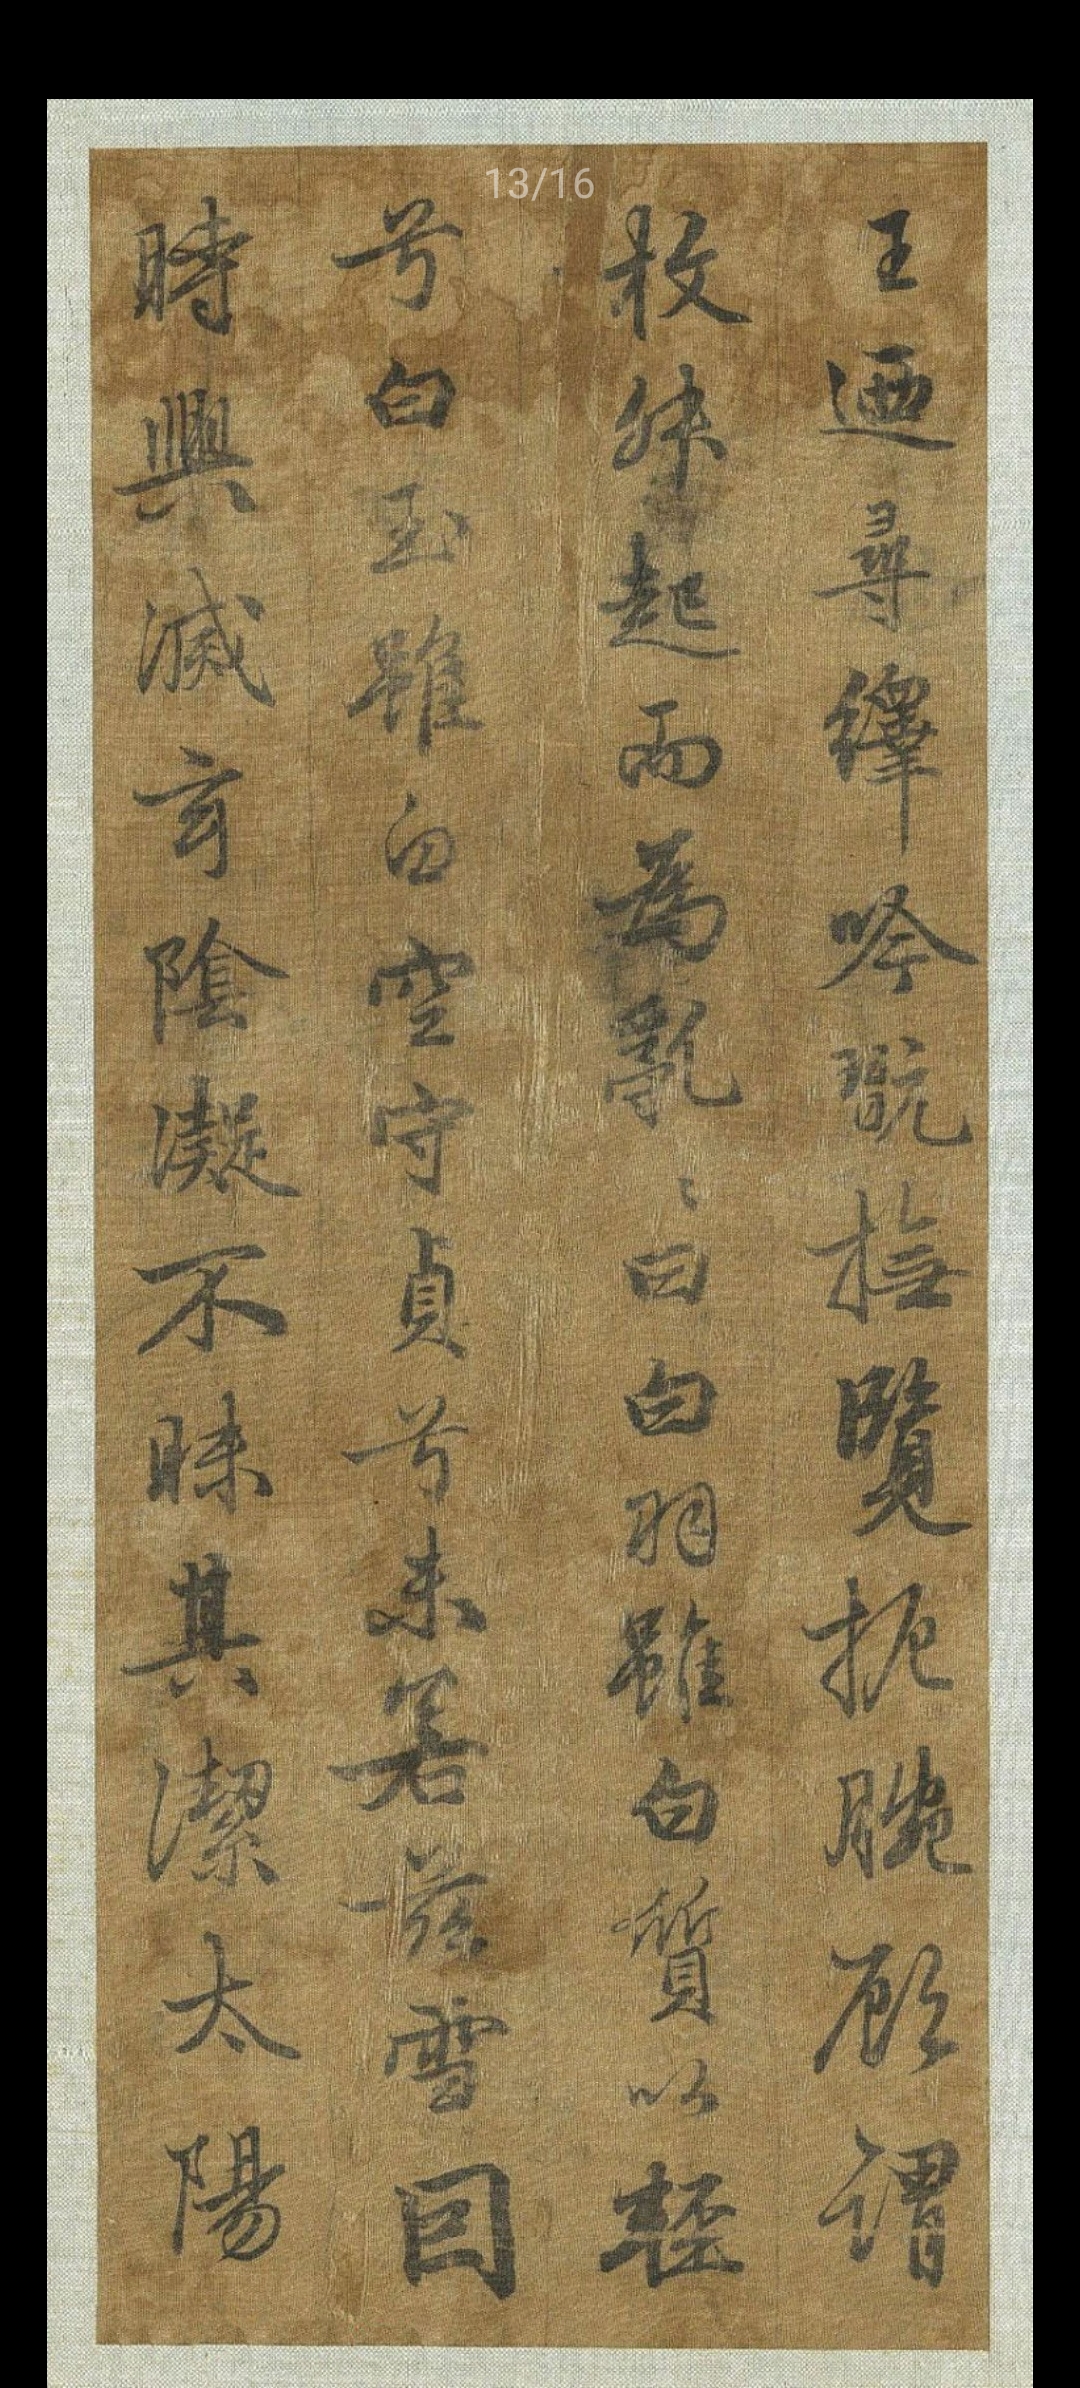 13/16
王迺尋繹吟翫撫覽扼腕顧謂
枚叔起而為亂〻曰白羽雖白質以輕
兮白玉雖白空守貞兮未若茲雪因
時興滅玄陰凝不昧其潔太陽